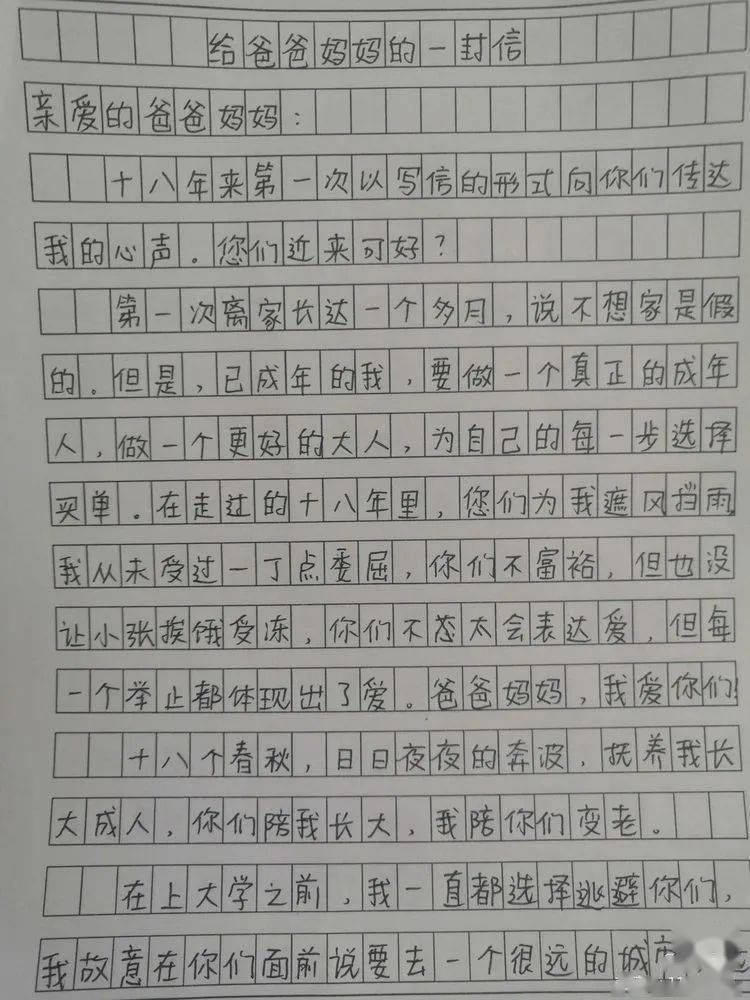 给爸爸妈妈的一封信
亲爱的爸爸妈妈：
十八年来第一次以写信的形式向你们传达
我的心声。您们近来可好？
第一次离家长达一个多月，说不想家是假
的。但是，已成年的我，要做一个真正的成年
人，做一个更好的大人，为自己的每一步选择
买单。在走过的十八年里，您们为我遮风挡雨
我从未受过一丁点委屈，你们不富裕，但也没
让小张挨饿受冻，你们不怎太会表达爱，但每
一个举止都体现出了爱。爸爸妈妈，我爱你们！
十八个春秋，日日夜夜的奔波，抚养我长
大成人，你们陪我长大，我陪你们变老。
在上大学之前，我一直都选择逃避你们，
我故意在你们面前说要去一个很远的城市，